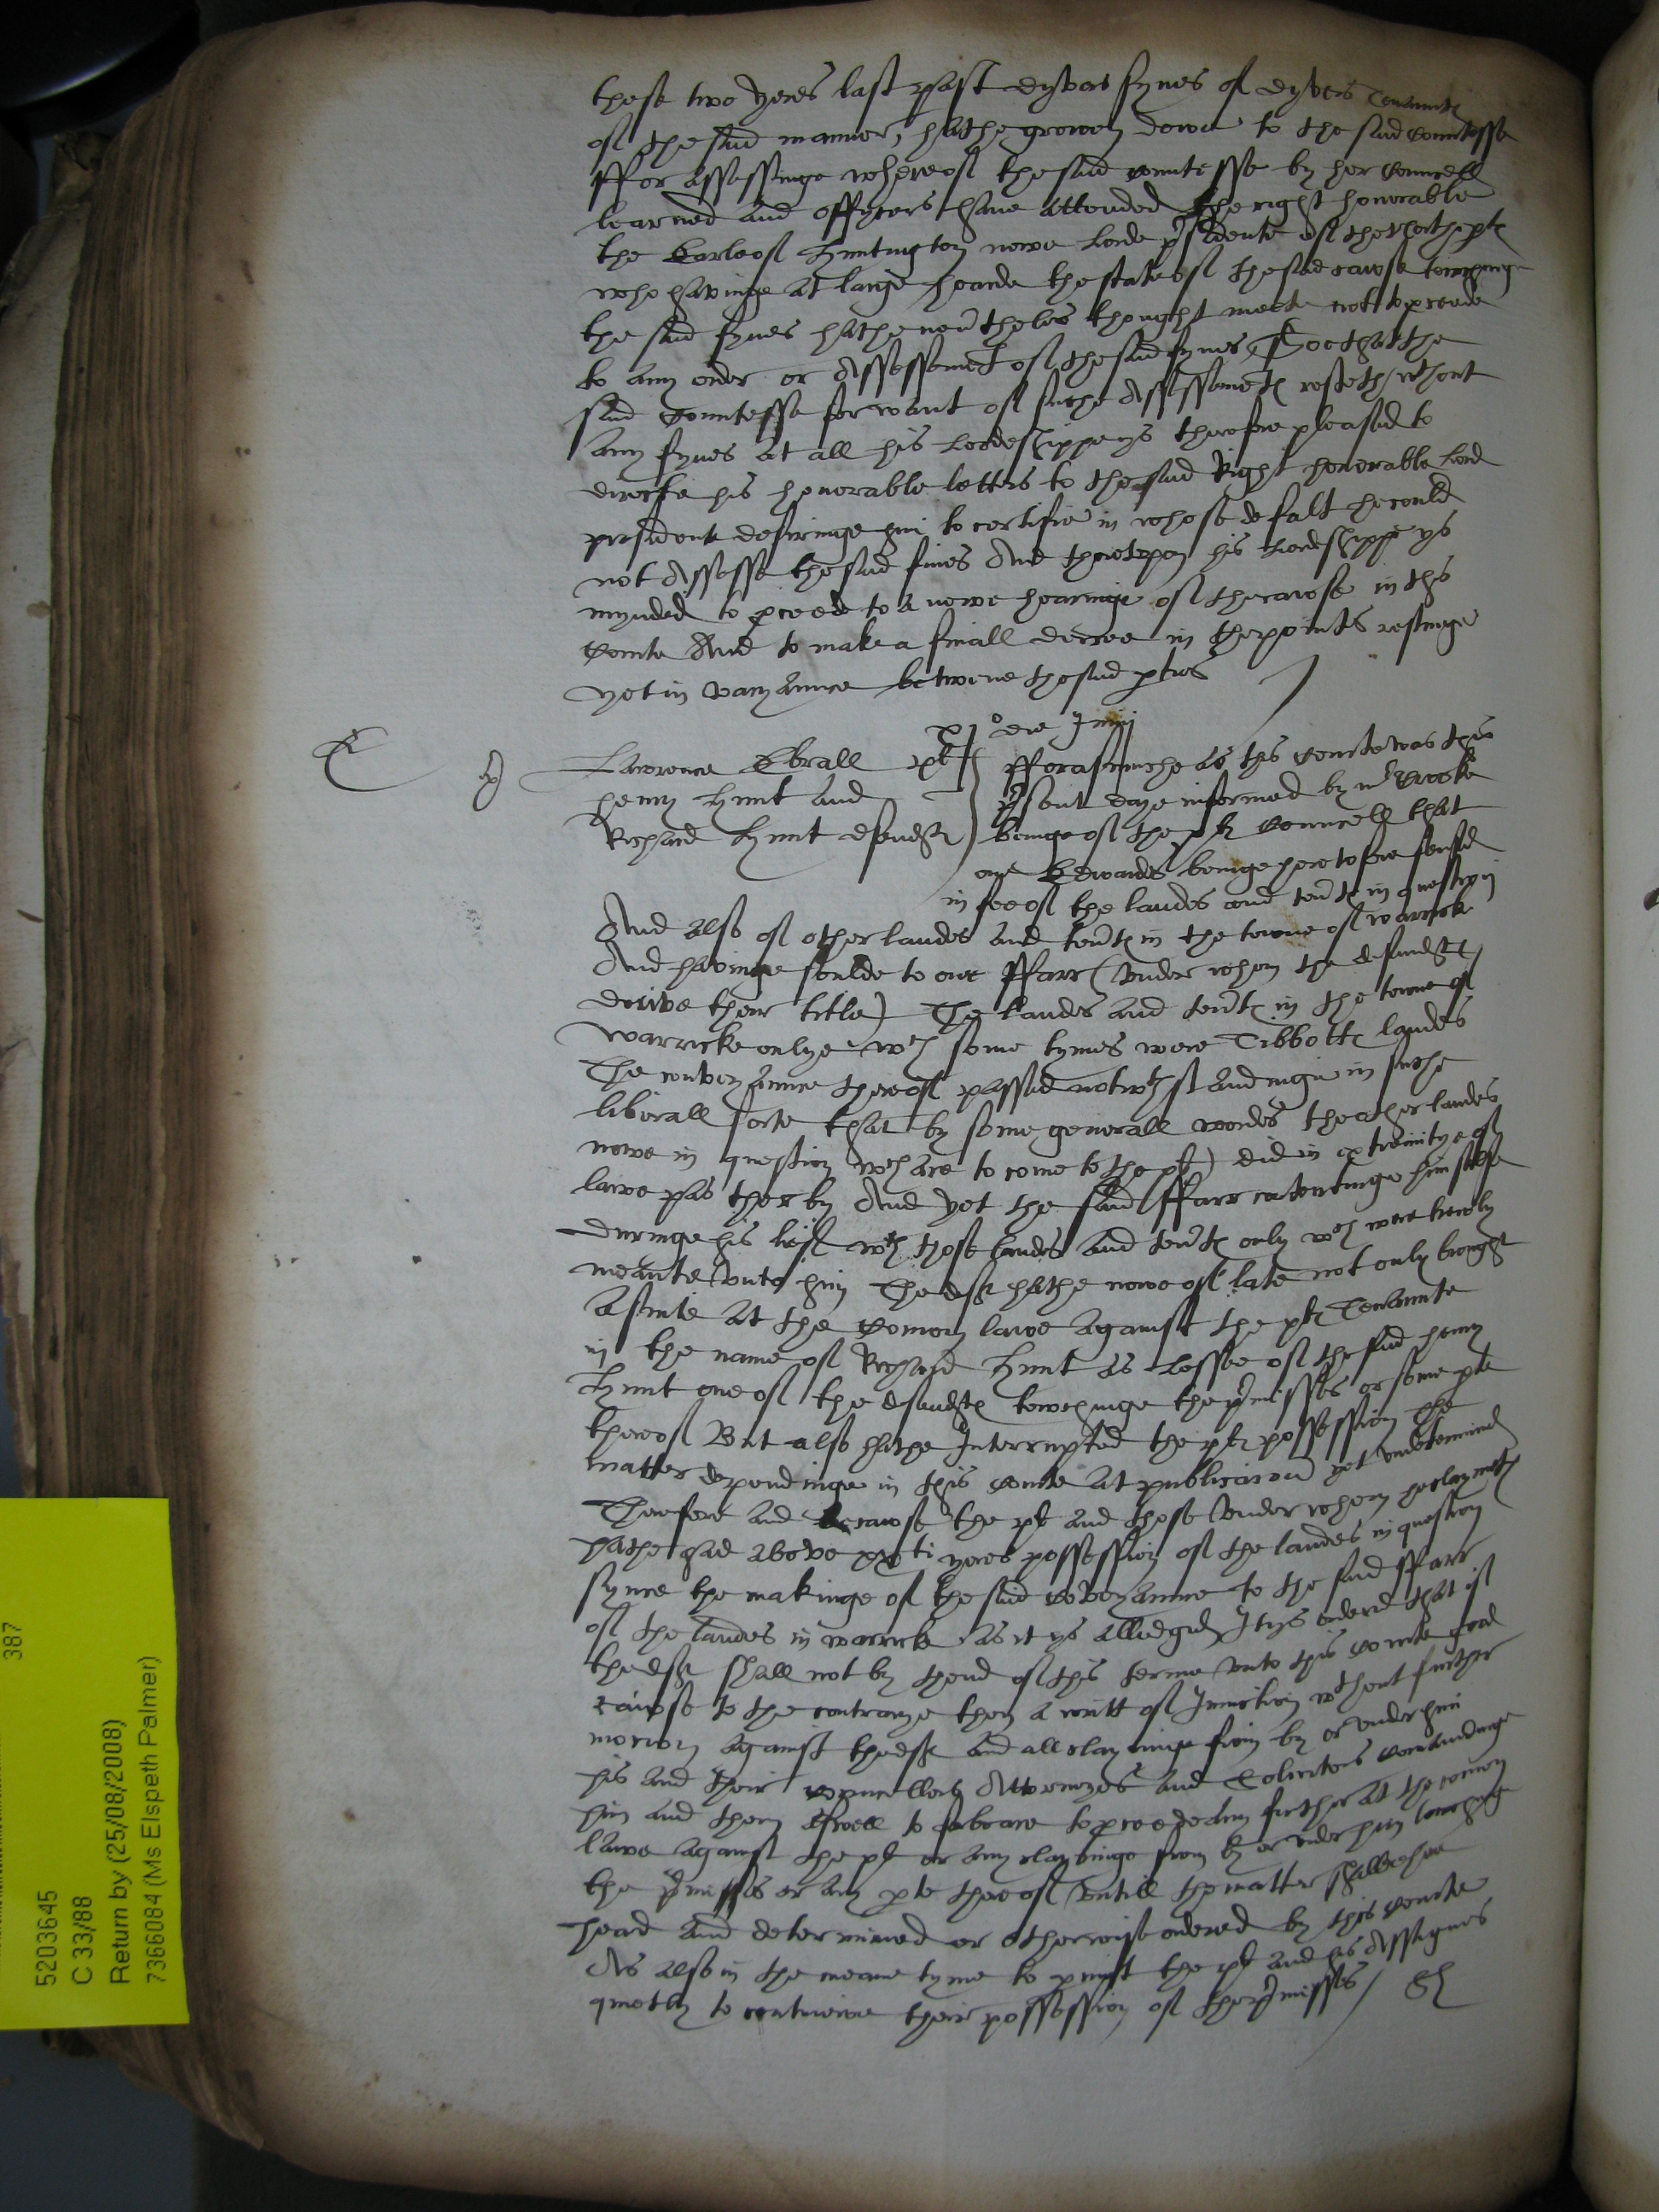 these two yeres last past dyvers fynes of dyvers Tenaunts
of the said mannor, hathe growen dewe to the said Countesse
ffor assessinge whereof the said Countesse by her Councell
learned and offycers have attended the right honorable
the Earle of Huntington nowe Lorde presidente of the Northe pts
who havinge at large hearde the state of the said cause towchinge
the said fynes hathe nevertheles thought meete not to procede
to any order or Assessement of the said fynes, Soe that the
said Countesse for want of suche Assessements resteth wthout
any fynes at all his Lordeshippe ys therefore pleased to
directe his honorable letters to the said Right honorable Lord
president desiringe him to certifie in whose defalt he could
not Assesse the said fines And therevpon his Lordshippe ys
mynded to procede to a newe hearinge of the cause in this
Courte And to make a finall decree in the points restinge
yet in varyaunce betwene the said pties
xjo die Junij
Lawrence Ebrall plt
henry Hunt and
Richard Hunt defendts
fforasmuche as this Courte was this
present daye informed by mr Brooke
beinge of the plts Councell that
one Edwards beinge heretofore seased
in fee of the landes and tents in question
And also of other landes and tents in the towne of warrick
And havinge soulde to one ffarr (vnder whom the defendts
derive their title) The landes and tents in the towne of
warricke onlye wch some tymes were Tibbotts landes
The conveyaunce thereof passed notwthstandinge in suche
liberall sorte that by some generall wordes the other landes
nowe in question wch are to come to the plt did in extremitye of
lawe pas therby And yet the said ffarr contentinge him selfe
duringe his lief wth those landes and tents only wch were trewly
meante vnto him The deft hathe nowe of late not only brought
a suite at the Comon lawe against the plts Tenaunte
in the name of Richard Hunt as Lessee of the said henry
Hunt one of the defendts towchinge the premisses or some pte
thereof But also hathe Interrupted the plts possession the
matter dependinge in this Courte at publicacion yet vndetermined
Therefore and because the plt and those vnder whom he claymeth
hathe had above xxti yeres possession of the landes in question
synce the makinge of the said Conveyaunce to the said ffarr
of the landes in warrick as it ys alledged, It ys ordered that if
the deft shall not by thend of this terme vnto this Courte good
cause to the contrarye then a writt of Iniunction wthout further
mocion against the deft and all clayminge from by or vnder him
his and their Councellors Attorneyes and Solicitors Commaundinge
him and them to forbeare to procede any further at the comon
lawe against the plt or any clayminge from by or vnder him towching
the premisses or any pte thereof vntill the matter shall be here
heard and determined or otherwise ordered by this Courte
As also in the meane tyme to permit the plt and his Assignes
quietly to contineue their possession of the premisses
387
5203645
C 33/88
Return by (25/08/2008)
7366084 (Ms Elspeth Palmer)